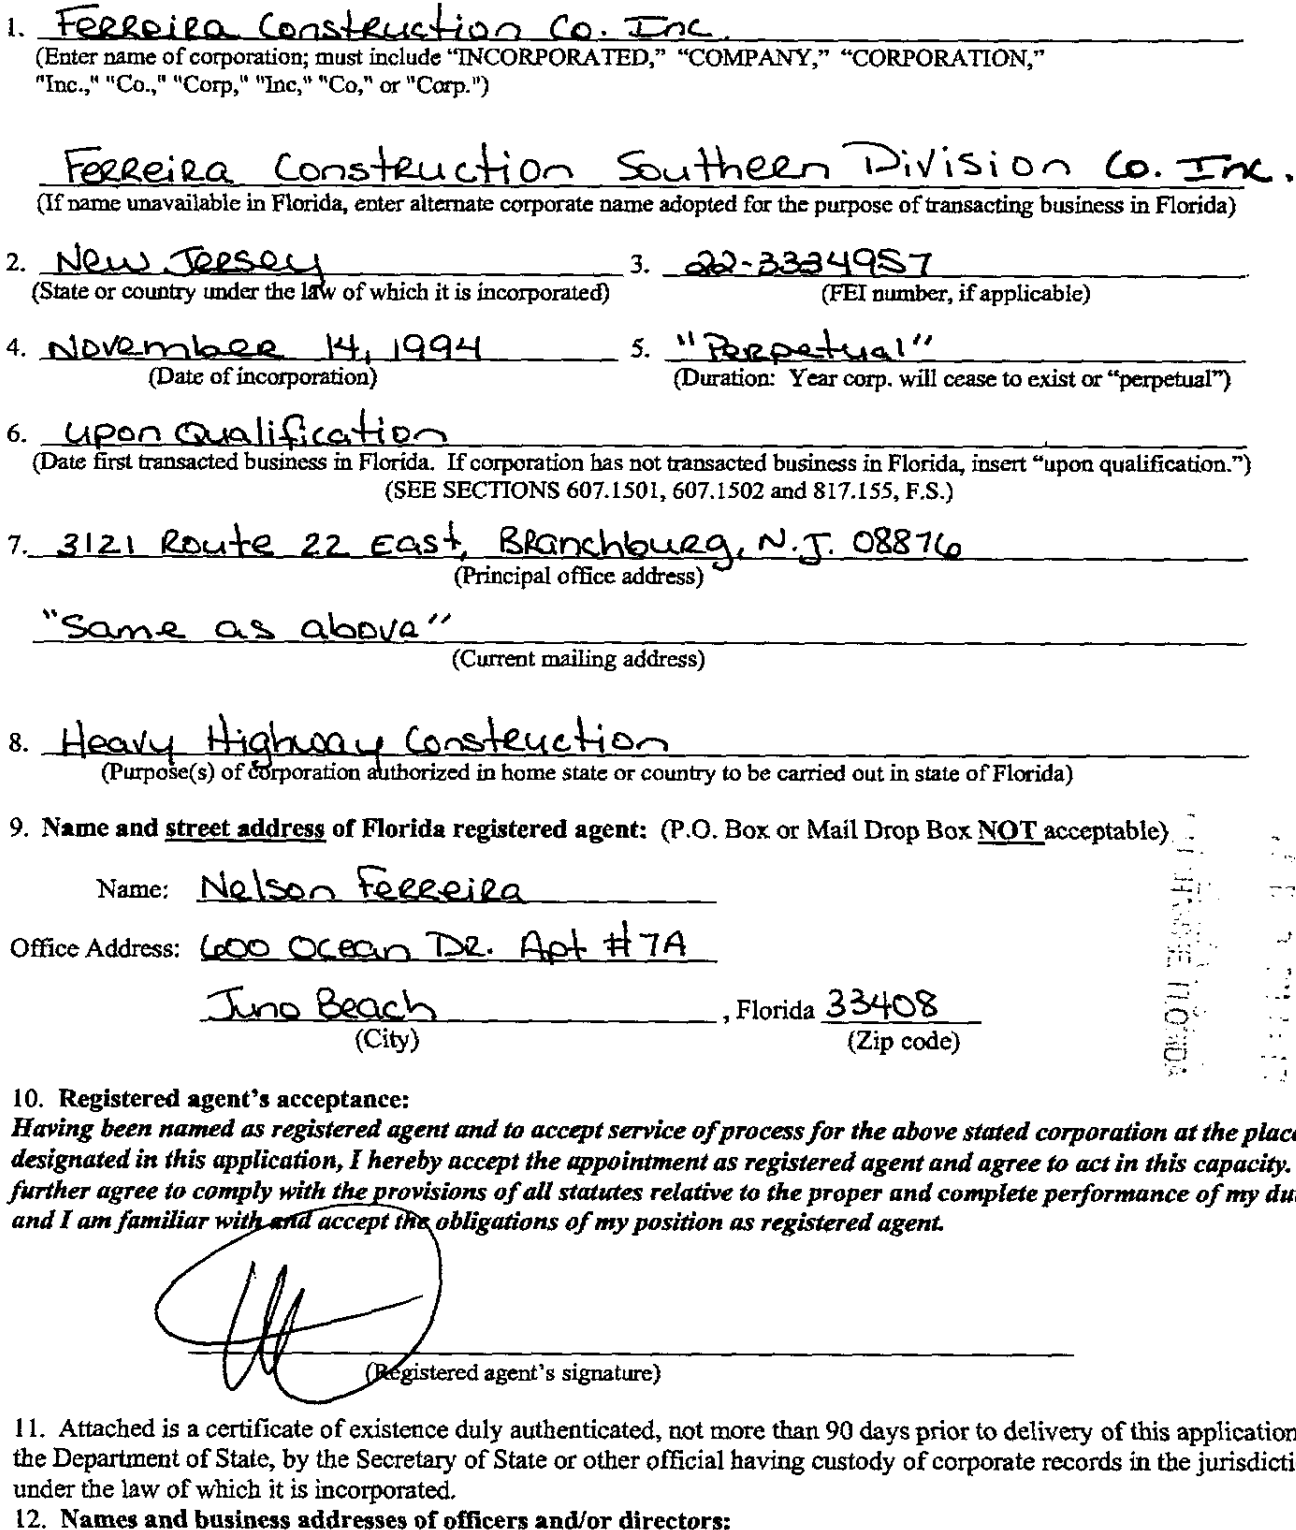 1. Ferreira Construction Co. Inc.
(Enter name of corporation; must include “INCORPORATED,” “COMPANY,” “CORPORATION,”
"Inc.," "Co.," "Corp," "Inc," "Co," or "Corp.")
Ferreira Construction Southern Division Co. Inc.
(If name unavailable in Florida, enter alternate corporate name adopted for the purpose of transacting business in Florida)
2. New Jersey 3. 22-3334957
(State or country under the law of which it is incorporated) (FEI number, if applicable)
4. November 14, 1994 5. "Perpetual"
(Date of incorporation) (Duration: Year corp. will cease to exist or “perpetual”)
6. upon Qualification
(Date first transacted business in Florida. If corporation has not transacted business in Florida, insert “upon qualification.”)
(SEE SECTIONS 607.1501, 607.1502 and 817.155, F.S.)
7. 3121 Route 22 East, Branchburg, N.J. 08876
(Principal office address)
"Same as above"
(Current mailing address)
8. Heavy Highway Construction
(Purpose(s) of corporation authorized in home state or country to be carried out in state of Florida)
9. Name and street address of Florida registered agent: (P.O. Box or Mail Drop Box NOT acceptable)
Name: Nelson Ferreira
Office Address: 600 Ocean Dr. Apt #7A
Juno Beach, Florida 33408
(City) (Zip code)
10. Registered agent’s acceptance:
Having been named as registered agent and to accept service of process for the above stated corporation at the place
designated in this application, I hereby accept the appointment as registered agent and agree to act in this capacity.
further agree to comply with the provisions of all statutes relative to the proper and complete performance of my
and I am familiar with and accept the obligations of my position as registered agent.
(Registered agent’s signature)
11. Attached is a certificate of existence duly authenticated, not more than 90 days prior to delivery of this application
the Department of State, by the Secretary of State or other official having custody of corporate records in the
under the law of which it is incorporated.
12. Names and business addresses of officers and/or directors: